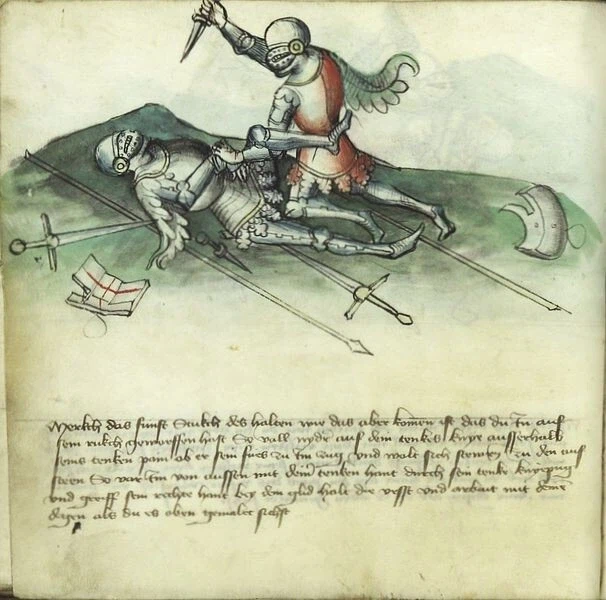 Merckh das funft Stukch des halten wie das aber komen ist das du In auf
sein rukch geworffen hast So vall nydr auf dem tenken knye ausserhalb
seins tenken pain ob er sein fues zu Im zug und wolt sich stewren zu den auf
steen So var Im von aussen mit deinr tenken hant durch sein tenke knyepug
und greiff sein rechte hant bey dem glid halt die vesst und arbait mit deinē
degen als du es oben gemalet sichst